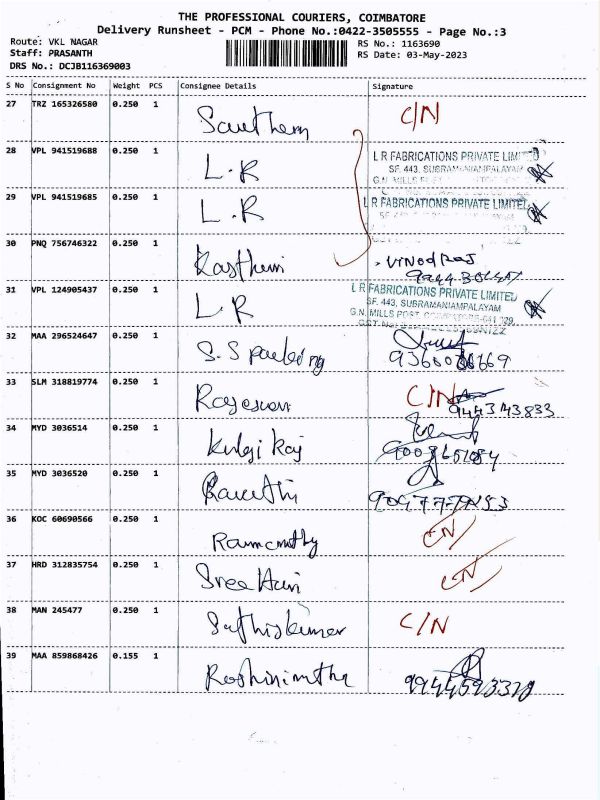 THE PROFESSIONAL COURIERS, COIMBATORE
Delivery Runsheet - PCM - Phone No.:0422-3505555 - Page No.:3
Route: VKL NAGAR RS No.: 1163690
Staff: PRASANTH RS Date: 03-May-2023
DRS No.: DCJB116369003
S No Consignment No Weight PCS Consignee Details Signature
27 TRZ 165326580 0.250 1 Southern C/N
28 VPL 941519688 0.250 1 L.R L R FABRICATIONS PRIVATE LIMITED
SF. 443, SUBRAMANIAMPALAYAM
G.N. MILLS POST
29 VPL 941519685 0.250 1 L.R L R FABRICATIONS PRIVATE LIMITED
30 PNQ 756746322 0.250 1 Kasthuri VINOD RAJ
31 VPL 124905437 0.250 1 L R L R FABRICATIONS PRIVATE LIMITED
SF. 443, SUBRAMANIAMPALAYAM
G.N. MILLS POST
32 MAA 296524647 0.250 1 S.S
33 SLM 318819774 0.250 1 C/N
9443743833
34 MYD 3036514 0.250 1
35 MYD 3036520 0.250 1
36 KOC 60690566 0.250 1 C/N
37 HRD 312835754 0.250 1 Sree Hari C/N
38 MAN 245477 0.250 1 Sathiskumar C/N
39 MAA 859868426 0.155 1